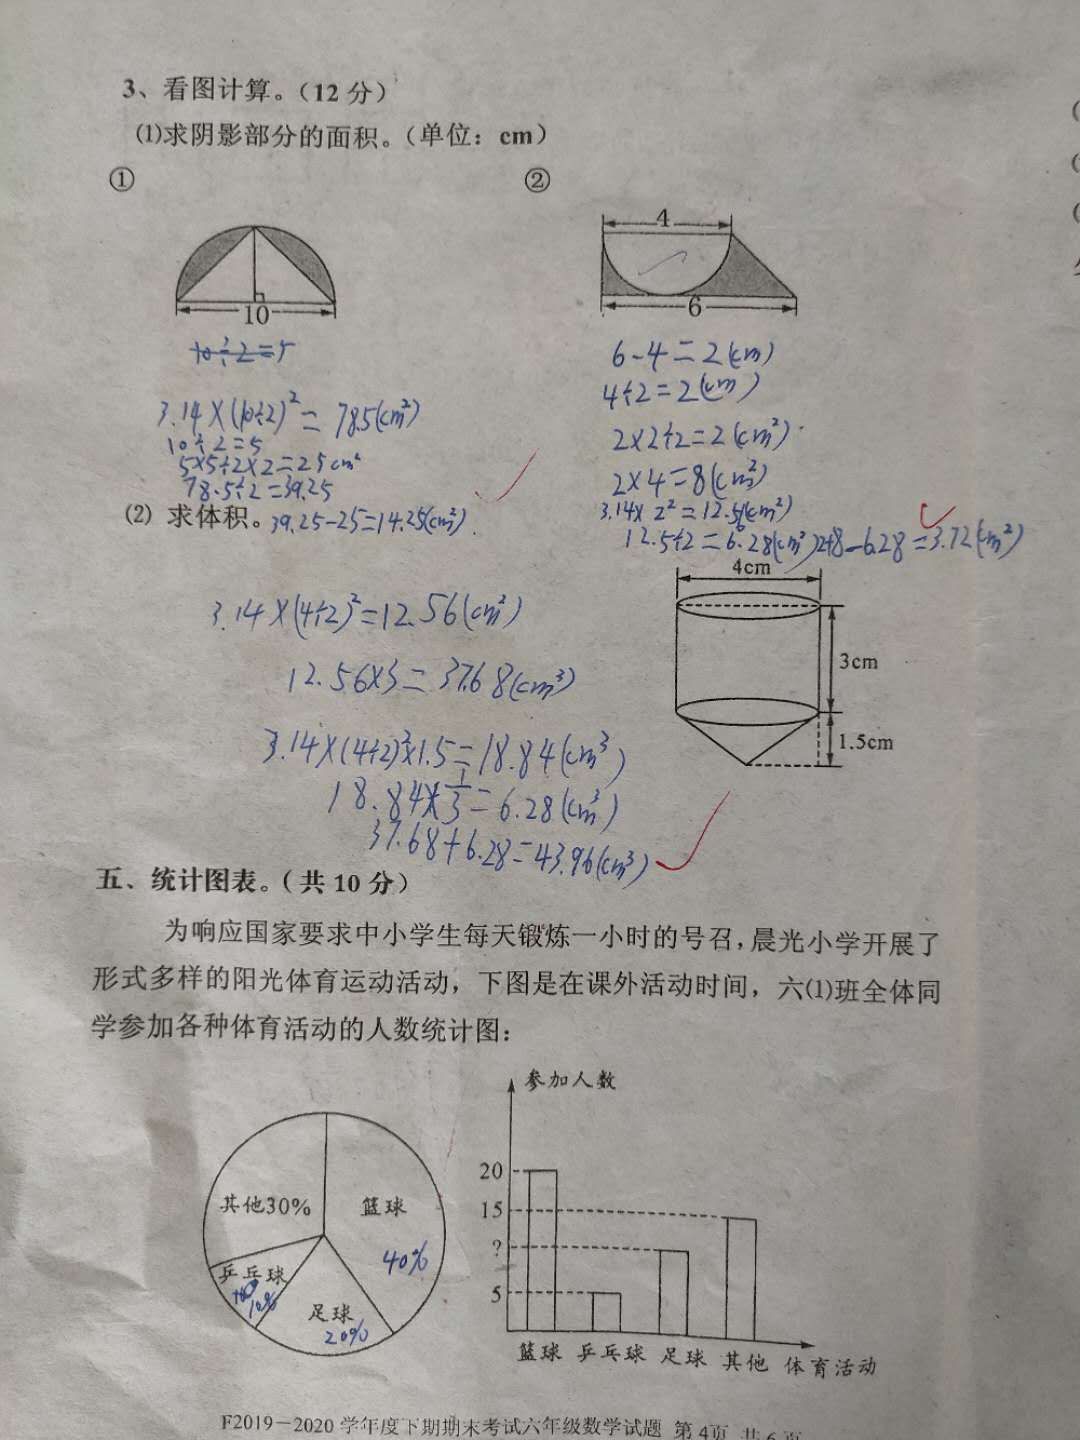 3、看图计算。(12分)
⑴求阴影部分的面积。(单位：cm)
①
②
10
4
6
10÷2=5
3.14×(10÷2)²=78.5(cm²)
10÷2=5
5×5÷2×2=25cm²
78.5÷2=39.25
39.25-25=14.25(cm²).
6-4=2(cm)
4÷2=2(cm)
2×2÷2=2(cm²)
2×4=8(cm²)
3.14×2²=12.56(cm²)
12.56÷2=6.28(cm²) 2+8-6.28=3.72(cm²)
⑵ 求体积。
4cm
3cm
1.5cm
3.14×(4÷2)²=12.56(cm²)
12.56×3=37.68(cm³)
3.14×(4÷2)²×1.5=18.84(cm³)
18.84×1/3=6.28(cm³)
37.68+6.28=43.96(cm³)
五、统计图表。(共10分)
为响应国家要求中小学生每天锻炼一小时的号召，晨光小学开展了
形式多样的阳光体育运动活动，下图是在课外活动时间，六⑴班全体同
学参加各种体育活动的人数统计图：
其他30%
篮球
40%
乒乓球
10%
足球
20%
参加人数
20
15
?
5
篮球 乒乓球 足球 其他 体育活动
F2019－2020学年度下期期末考试六年级数学试题 第4页 共6页